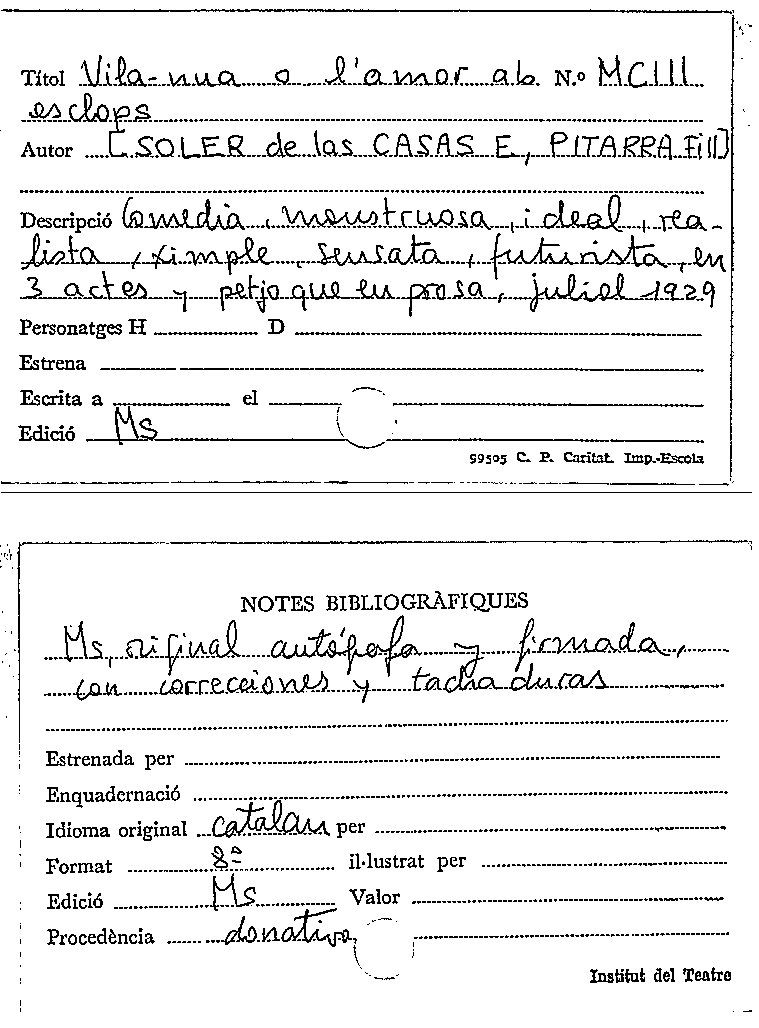 Títol Vila-nua o l'amor ab N.º MCIII
esclops
Autor [SOLER de las CASAS E, PITARRA Fill]
Descripció Comedia, monstruosa, ideal, rea-
lista, ximple, sensata, futurista, en
3 actes y petjo que en prosa, juliol 1929
Personatges H D
Estrena
Escrita a el
Edició Ms
99505 C. P. Caritat. Imp.-Escola
NOTES BIBLIOGRÀFIQUES
Ms, original autógrafo y firmada,
con correcciones y tachaduras
Estrenada per
Enquadernació
Idioma original catalan per
Format 8º il·lustrat per
Edició Ms Valor
Procedència donativo
Institut del Teatre